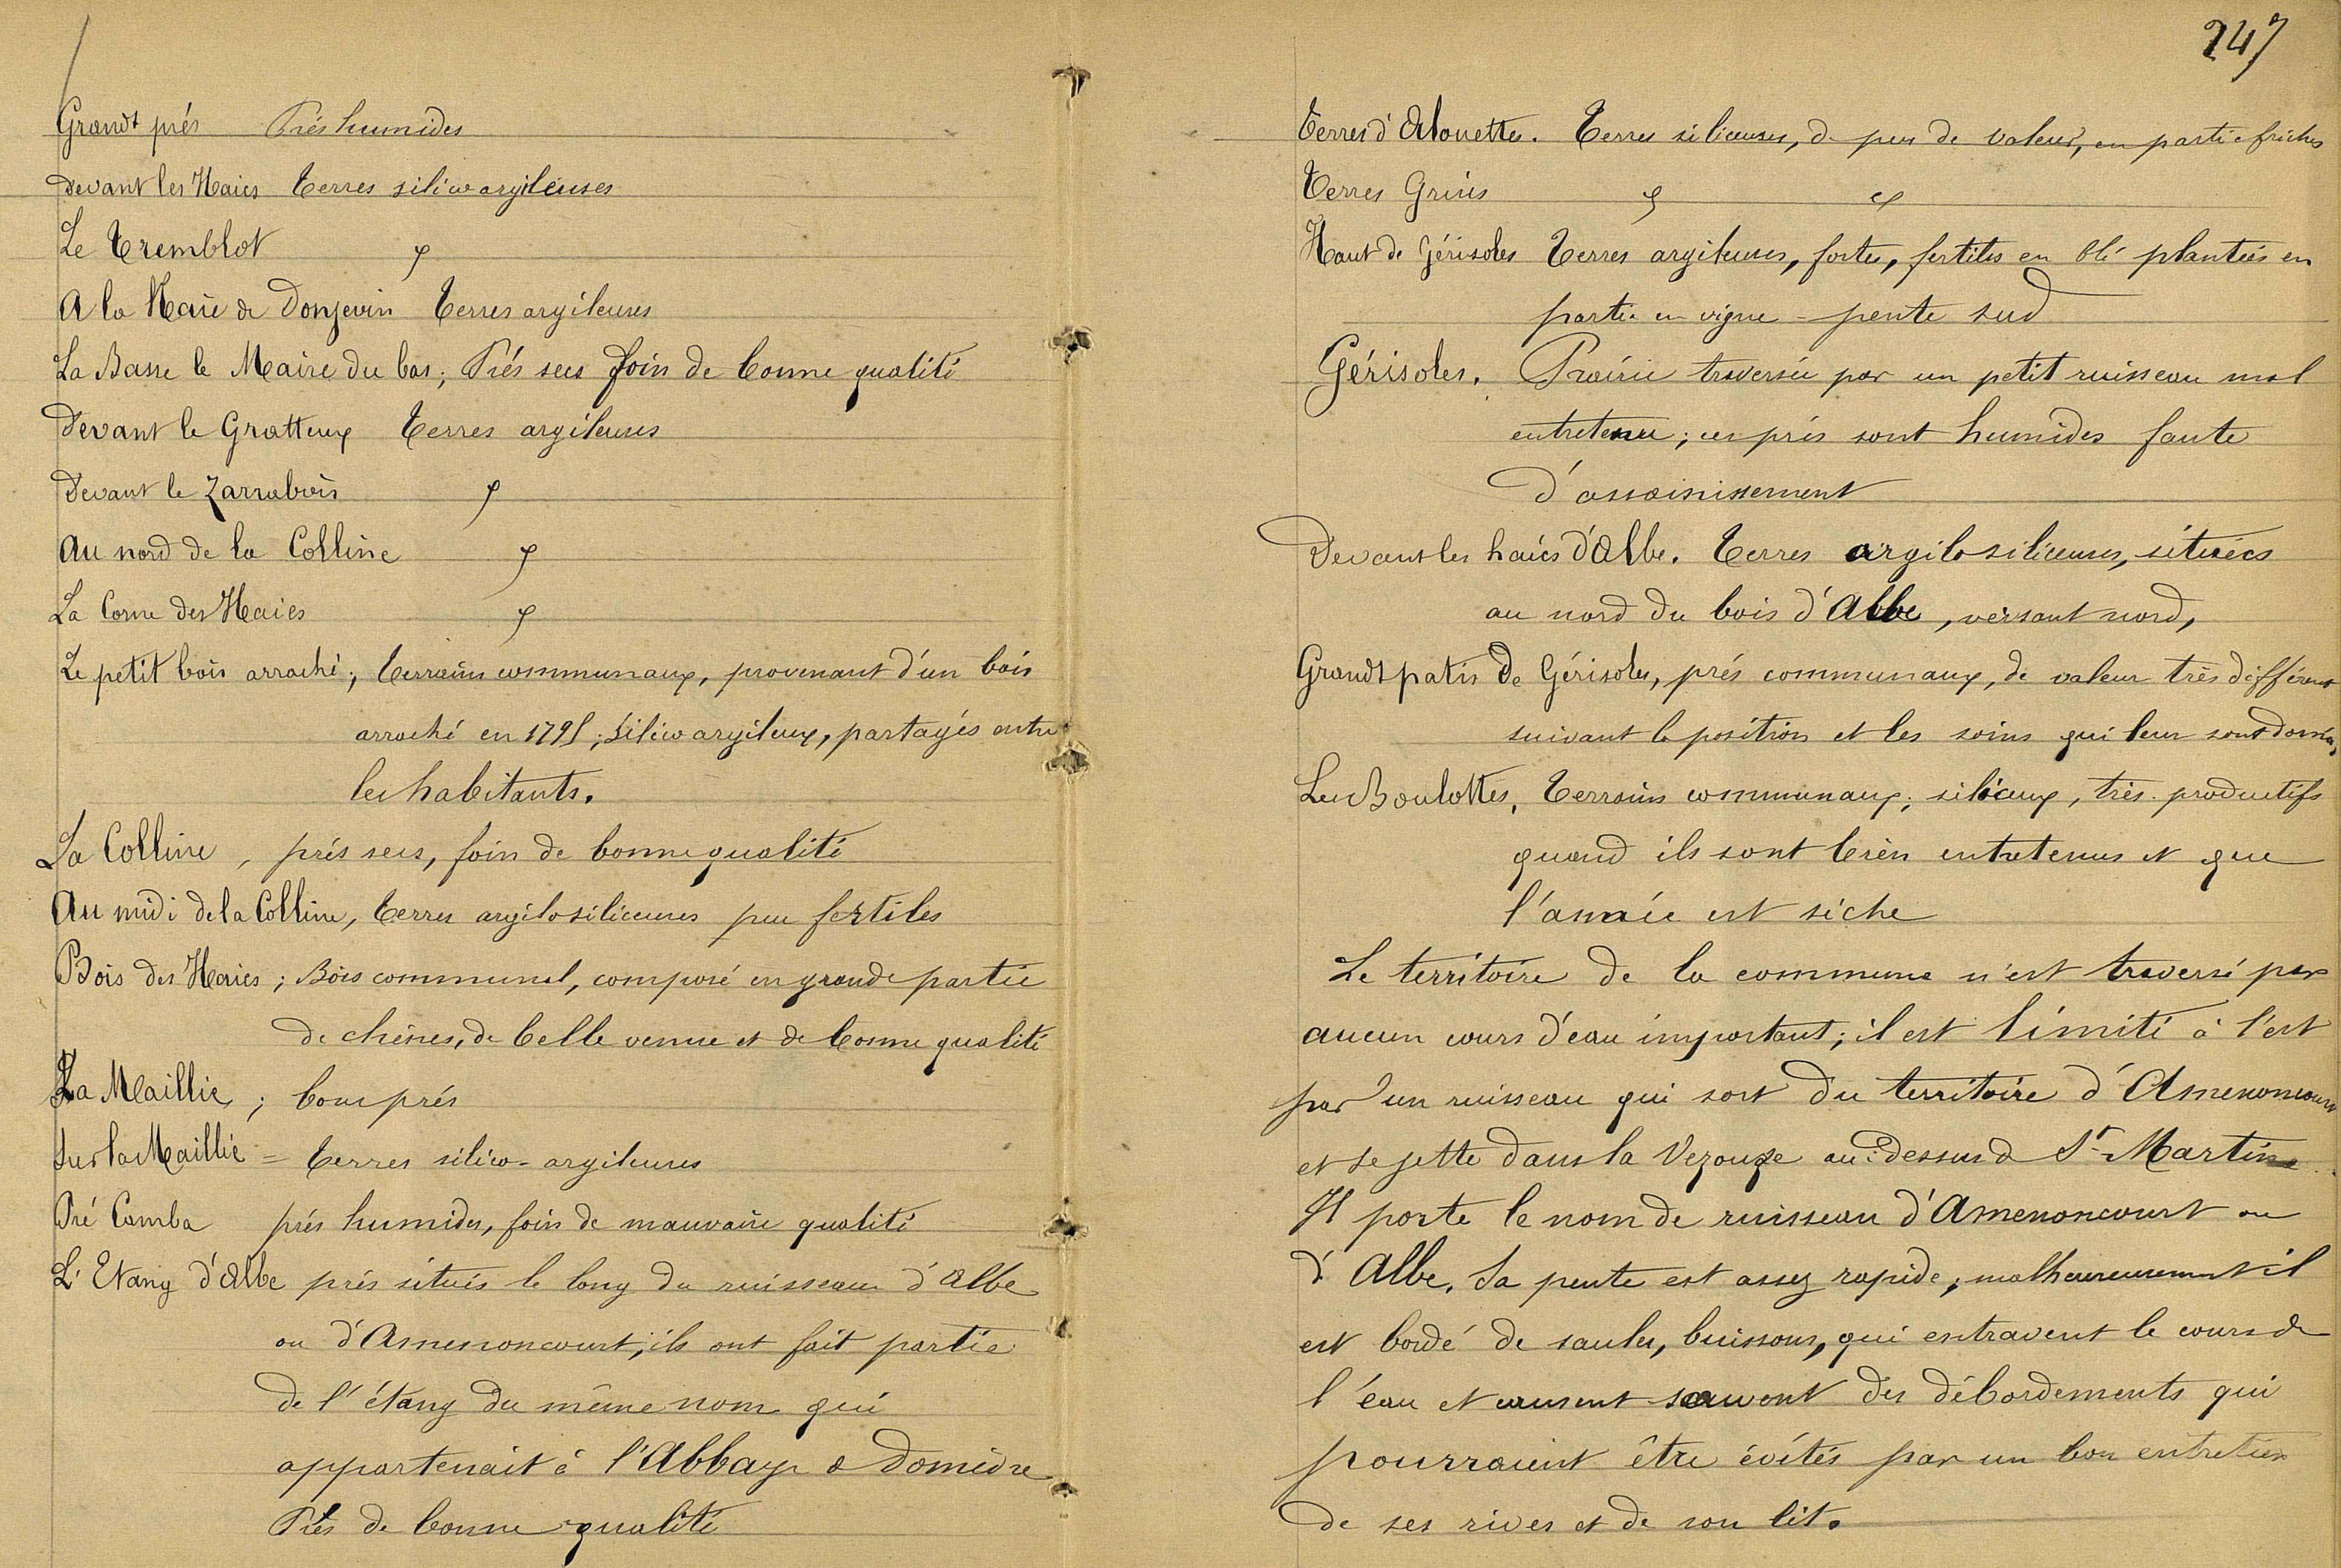 Grands prés Prés humides
Devant les Haies Terres silico argileuses
Le Tremblot "
A la Haie de Donjevin Terres argileuses
La Basse le Maire du bas ; Prés secs foin de bonne qualité
Devant le Gratteux Terres argileuses
Devant le Zarrabois "
Au nord de la Colline "
La Corne des Haies "
Le petit bois arraché ; Terrains communaux, provenant d'un bois
arraché en 1795 ; silico argileux, partagés entre
les habitants.
La Colline, prés secs, foin de bonne qualité
Au midi de la Colline, Terres argilo siliceuses peu fertiles
Bois des Haies ; Bois communal, composé en grande partie
de chênes, de belle venue et de bonne qualité
La Maillie ; bons prés
Sur la Maillie = Terres silico-argileuses
Pré Camba prés humides, foin de mauvaise qualité
L'Etang d'Albe prés situés le long du ruisseau d'Albe
ou d'Amenoncourt ; ils ont fait partie
de l'étang du même nom qui
appartenait à l'Abbaye de Domèvre
Prés de bonne qualité
247
Terres d'Alouette. Terres siliceuses, de peu de valeur, en partie friches
Terres " "
Haut de Gérisoles Terres argileuses, fortes, fertiles en blé plantées en
partie en vigne - pente sud
Gérisoles. Prairie traversée par un petit ruisseau mal
entretenu ; ces prés sont humides faute
d'assainissement
Devant les haies d'Albe. Terres argilo siliceuses, situées
au nord du bois d'Albe, versant nord,
Grands patis de Gérisoles, prés communaux, de valeur très différente
suivant la position et les soins qui leur sont donnés,
Les Boulottes. Terrains communaux ; siliceux, très productifs
quand ils sont bien entretenus et que
l'année est sèche
Le territoire de la commune n'est traversé par
aucun cours d'eau important ; il est limité à l'est
par un ruisseau qui sort du territoire d'Amenoncourt
et se jette dans la Vezouze au-dessus de St-Martin
Il porte le nom de ruisseau d'Amenoncourt ou
d'Albe. Sa pente est assez rapide ; malheureusement il
est bordé de saules, buissons, qui entravent le cours de
l'eau et causent souvent des débordements qui
pourraient être évités par un bon entretien
de ses rives et de son lit.